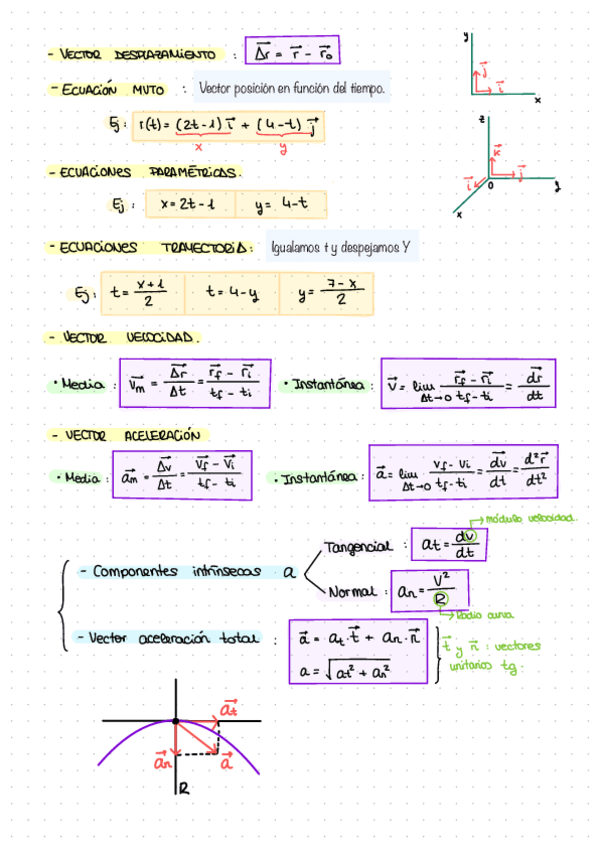 - VECTOR DESPLAZAMIENTO : Δr⃗ = r⃗ - r⃗₀
- ECUACIÓN MUTO : Vector posición en función del tiempo.
Ej: r(t) = (2t-1) i⃗ + (4-t) j⃗
x y
y j⃗ i⃗ x
z k⃗ j⃗ i⃗ O y x
- ECUACIONES PARAMÉTRICAS.
Ej: x = 2t-1 y = 4-t
- ECUACIONES TRAYECTORIA: Igualamos t y despejamos Y
Ej: t = (x+1)/2 t = 4-y y = (7-x)/2
- VECTOR VELOCIDAD.
• Media : v⃗m = Δr⃗/Δt = (r⃗f - r⃗i)/(tf - ti) • Instantánea : v⃗ = lim Δt→0 (r⃗f - r⃗i)/(tf - ti) = dr⃗/dt
- VECTOR ACELERACIÓN
• Media : a⃗m = Δv⃗/Δt = (v⃗f - v⃗i)/(tf - ti) • Instantánea : a⃗ = lim Δt→0 (vf - vi)/(tf - ti) = dv⃗/dt = d²r⃗/dt²
módulo velocidad.
Tangencial : at = dv/dt
- Componentes intrínsecas a
Normal : an = v²/R
Radio curva
- Vector aceleración total : a⃗ = at · t⃗ + an · n⃗
a = √(at² + an²)
t⃗ y n⃗ : vectores
unitarios tg.
a⃗t
a⃗n a⃗
R